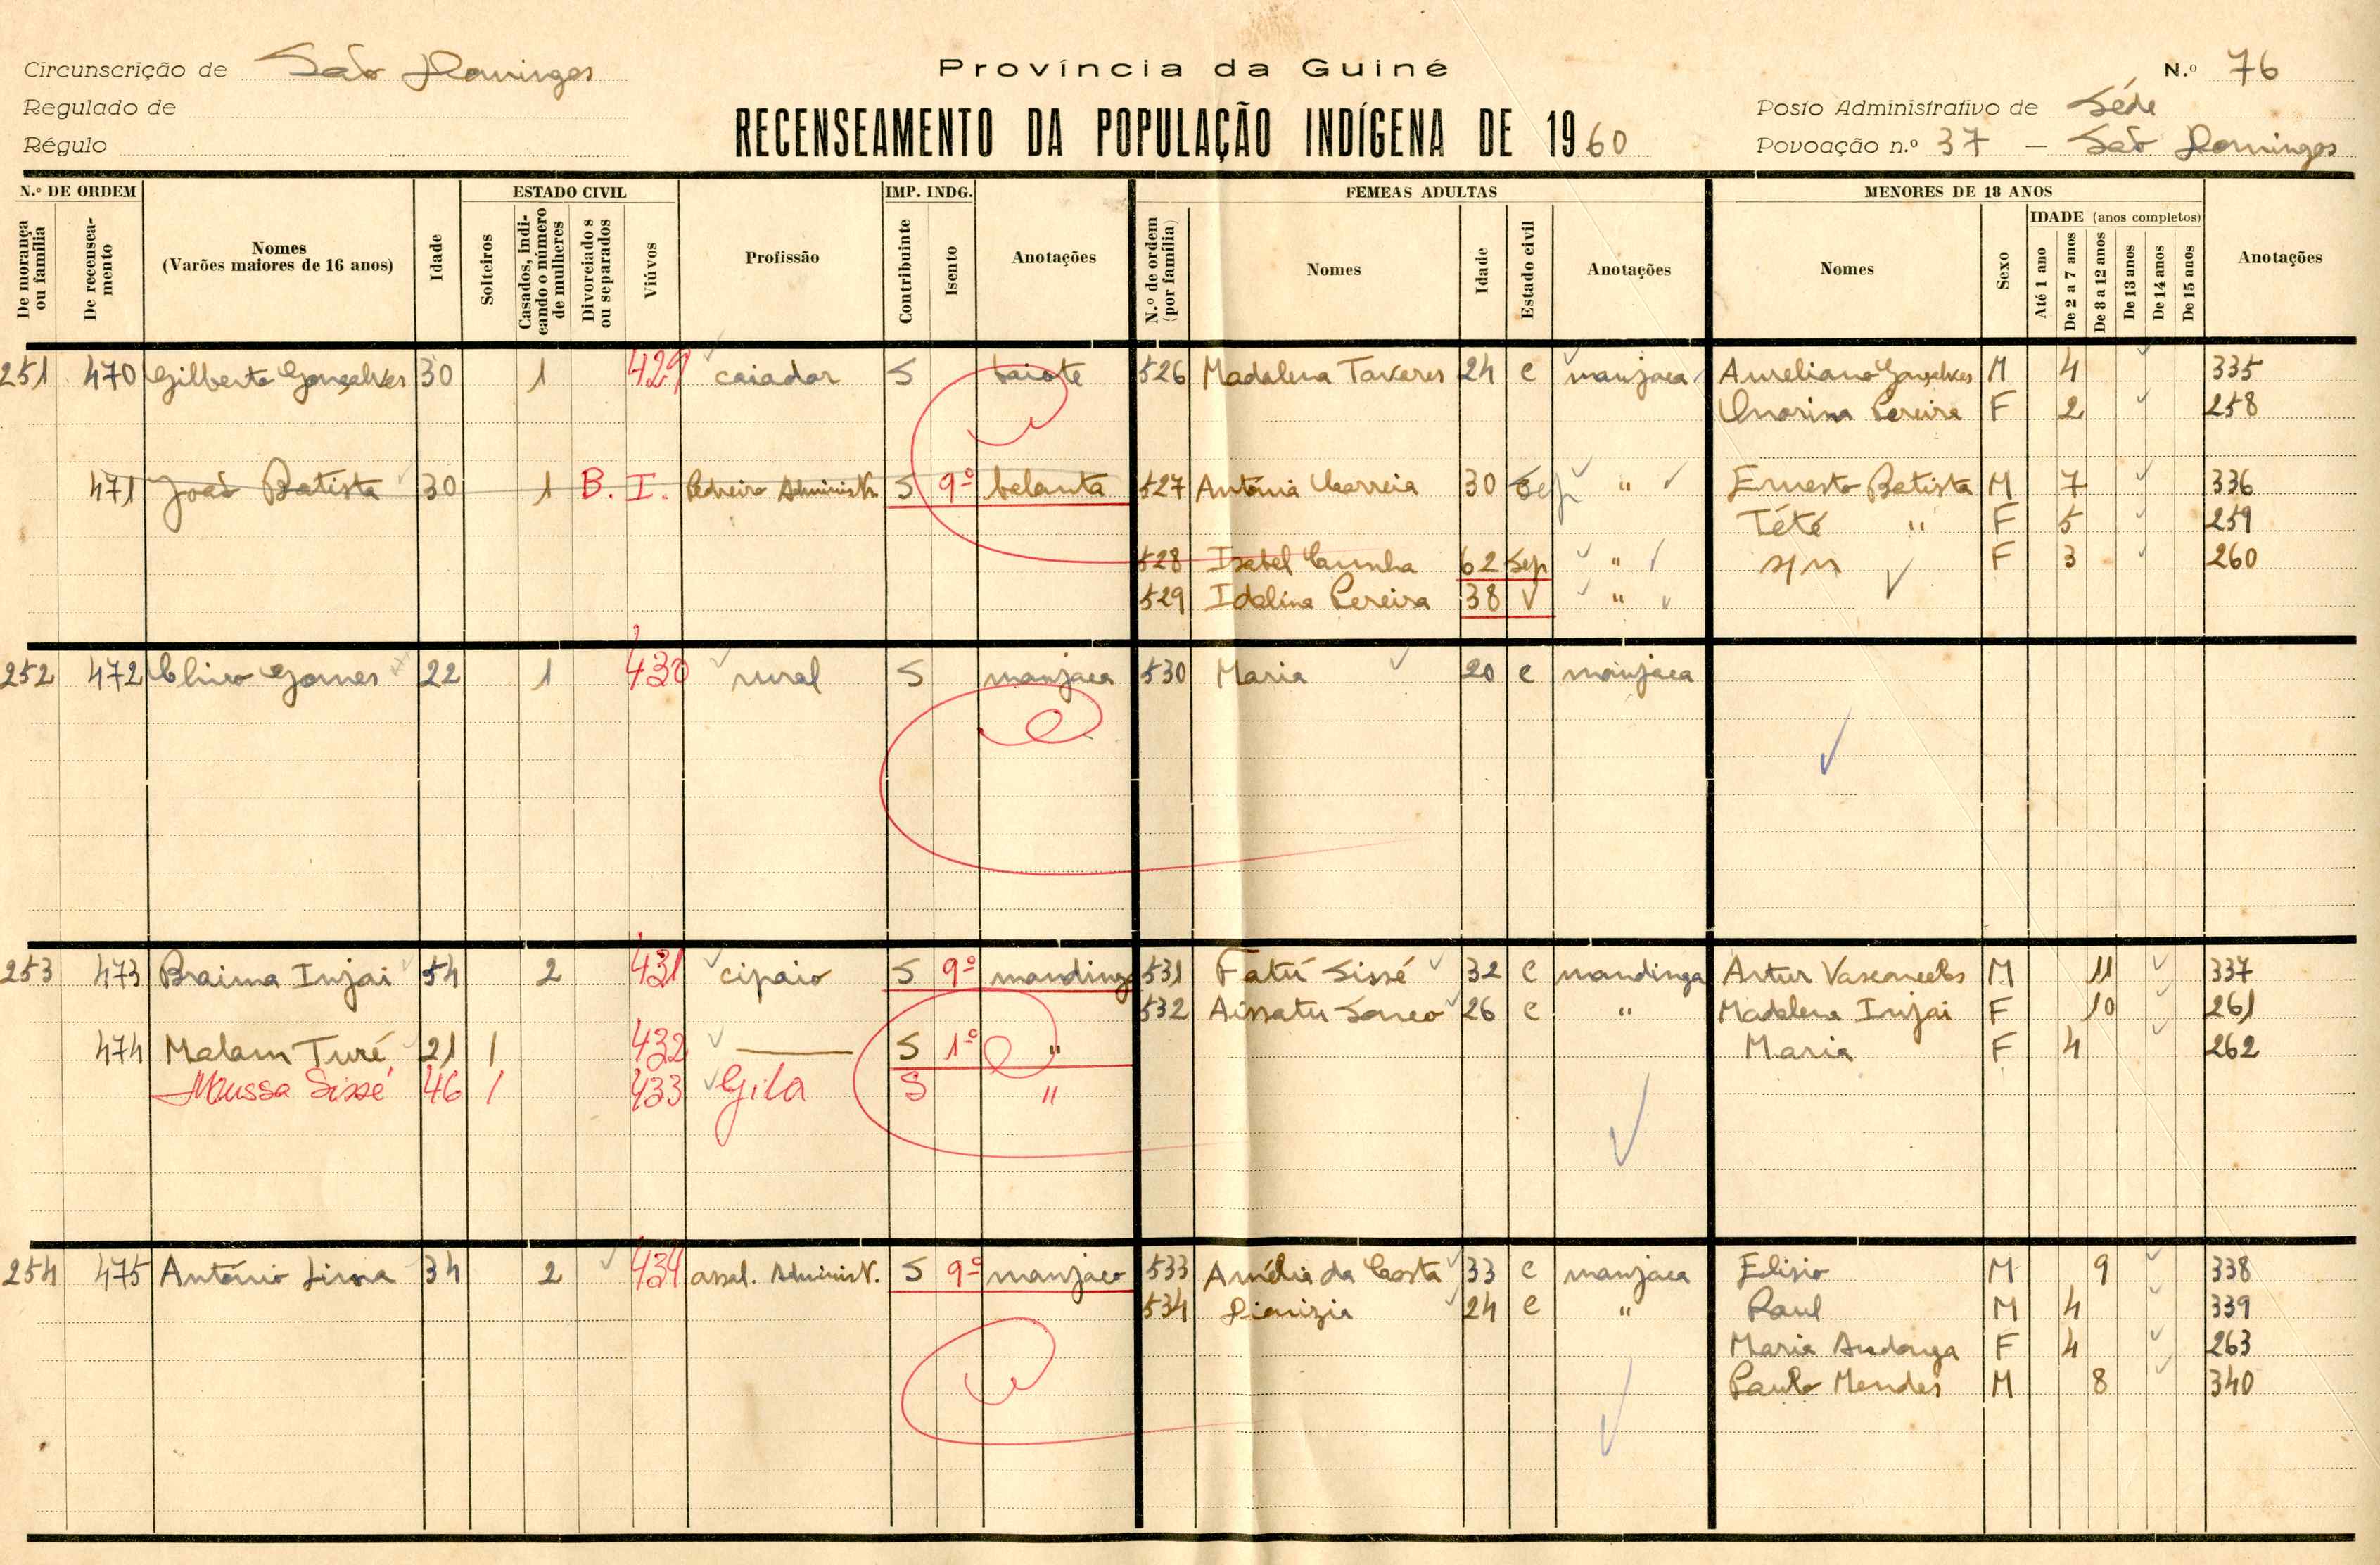 Circunscrição de São Domingos
Regulado de
Régulo
Província da Guiné
RECENSEAMENTO DA POPULAÇÃO INDÍGENA DE 1960
N.º 76
Posto Administrativo de Séde
Povoação n.º 37 — São Domingos
N.º DE ORDEM
De morança ou família
De recenseamento
Nomes
(Varões maiores de 16 anos)
Idade
ESTADO CIVIL
Solteiros
Casados, indicando o número de mulheres
Divorciados ou separados
Viúvos
Profissão
IMP. INDG.
Contribuinte
Isento
Anotações
FEMEAS ADULTAS
N.º de ordem (por família)
Nomes
Idade
Estado civil
Anotações
MENORES DE 18 ANOS
Nomes
Sexo
IDADE (anos completos)
Até 1 ano
De 2 a 7 anos
De 8 a 12 anos
De 13 anos
De 14 anos
De 15 anos
Anotações
251 470 Gilberto Gonçalves 30 1 429 caiador S baiote 526 Madalena Tavares 24 C manjaca Aureliano Gonçalves M 4 335
Pereira F 2 258
471 João Batista 30 1 B. I. Pedreiro Administr. S 9º balanta 527 Antónia Correia 30 Sep " Ernesto Batista M 7 336
Tété " F 5 259
528 Isabel Cunha 62 Sep " s/n F 3 260
529 Idalina Pereira 38 V "
252 472 Gomes 22 1 430 rural S manjaca 530 Maria 20 C manjaca
253 473 Braima Injai 54 2 431 cipaio S 9º mandinga 531 Fatú Sissé 32 C mandinga Artur Vasconcelos M 11 337
532 Aissatu Sanco 26 C " Madalena Injai F 10 261
474 Malam Turé 21 1 432 — S 1º " Maria F 4 262
Mussa Sissé 46 1 433 Gila S "
254 475 António Lima 34 2 434 assal. Administr. S 9º manjaco 533 Amélia da Costa 33 C manjaca Elisio M 9 338
534 Dionizia 24 C " Raul M 4 339
Maria F 4 263
Paulo Mendes M 8 340